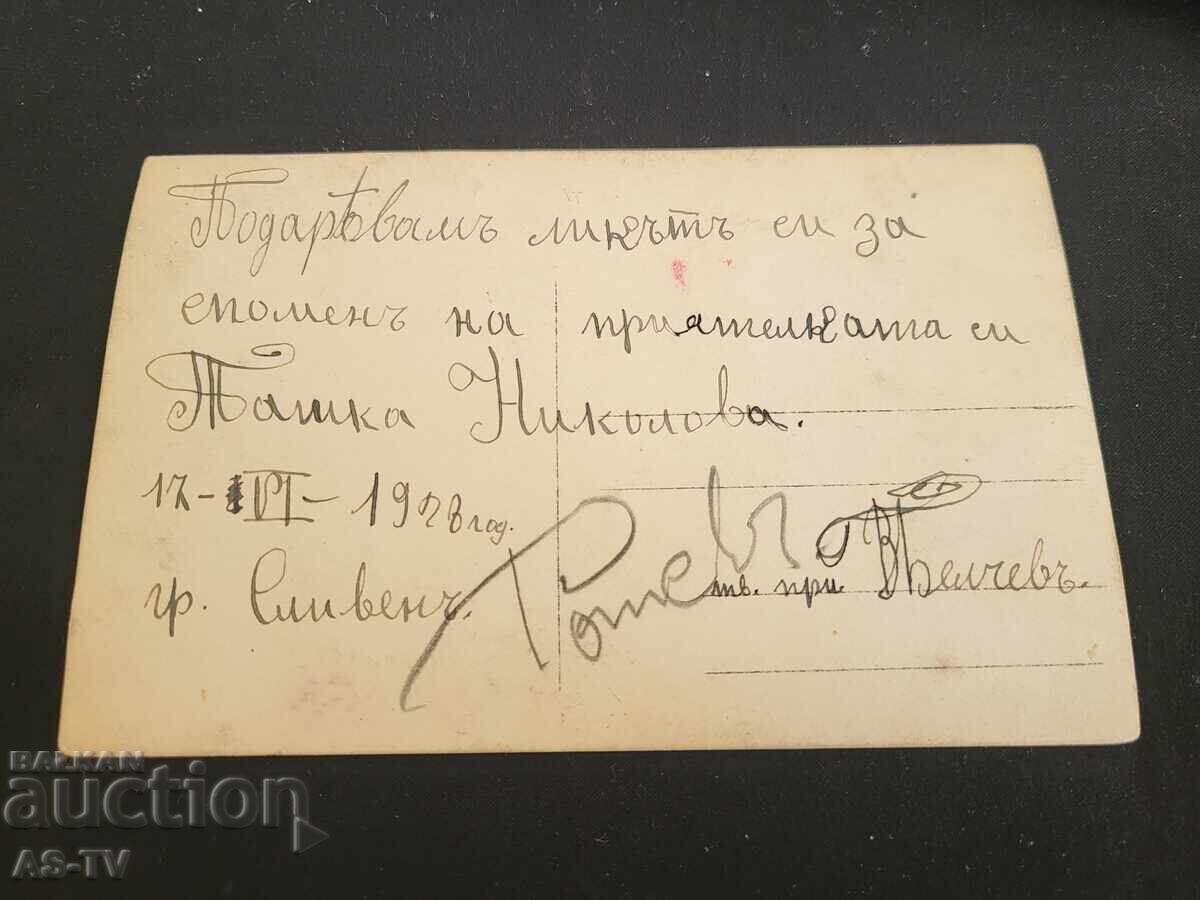 Подарѣвамъ ликътъ си за
споменъ на приятелката си
Ташка Николова.
17-VI-1928 год.
гр. Сливенъ.
тв. при. Велчевъ.
BALKAN
auction
AS-TV